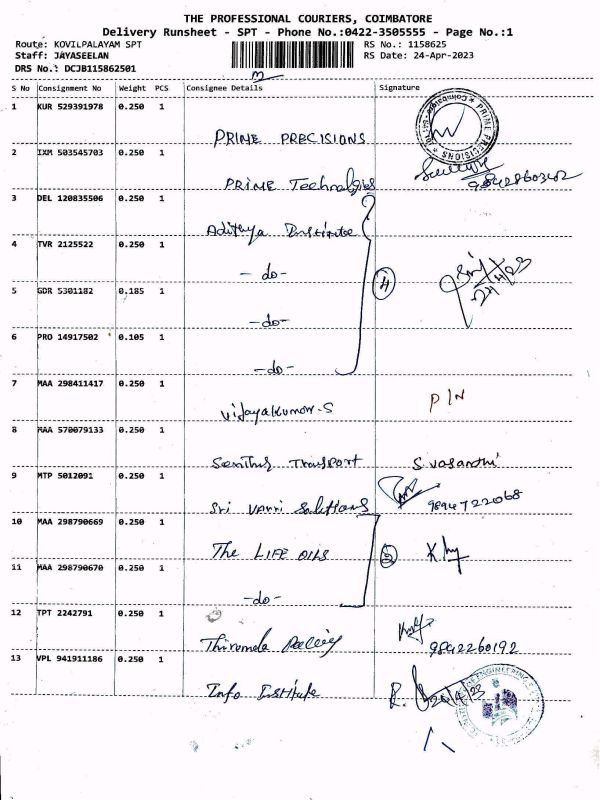 THE PROFESSIONAL COURIERS, COIMBATORE
Delivery Runsheet - SPT - Phone No.:0422-3505555 - Page No.:1
Route: KOVILPALAYAM SPT
Staff: JAYASEELAN
DRS No.: DCJB115862501
RS No.: 1158625
RS Date: 24-Apr-2023
S No Consignment No Weight PCS Consignee Details Signature
1 KUR 529391978 0.250 1
PRIME PRECISIONS
PRIME PRECISIONS
2 IXM 503545703 0.250 1
PRIME Technolgies
9842860342
3 DEL 120835506 0.250 1
Adithya Institute
4 TVR 2125522 0.250 1
-do-
4
24/4/23
5 GDR 5301182 0.185 1
-do-
6 PRO 14917502 0.105 1
-do-
7 MAA 298411417 0.250 1
Vijayakumar.S
PIN
8 MAA 570079133 0.250 1
Transport
S.Vasanthi
9 MTP 5012091 0.250 1
Sri Solutions
9894722068
10 MAA 298790669 0.250 1
The LIFE OILS
2
11 MAA 298790670 0.250 1
-do-
12 TPT 2242791 0.250 1
9842260192
13 VPL 941911186 0.250 1
Info Institute
24/4/23